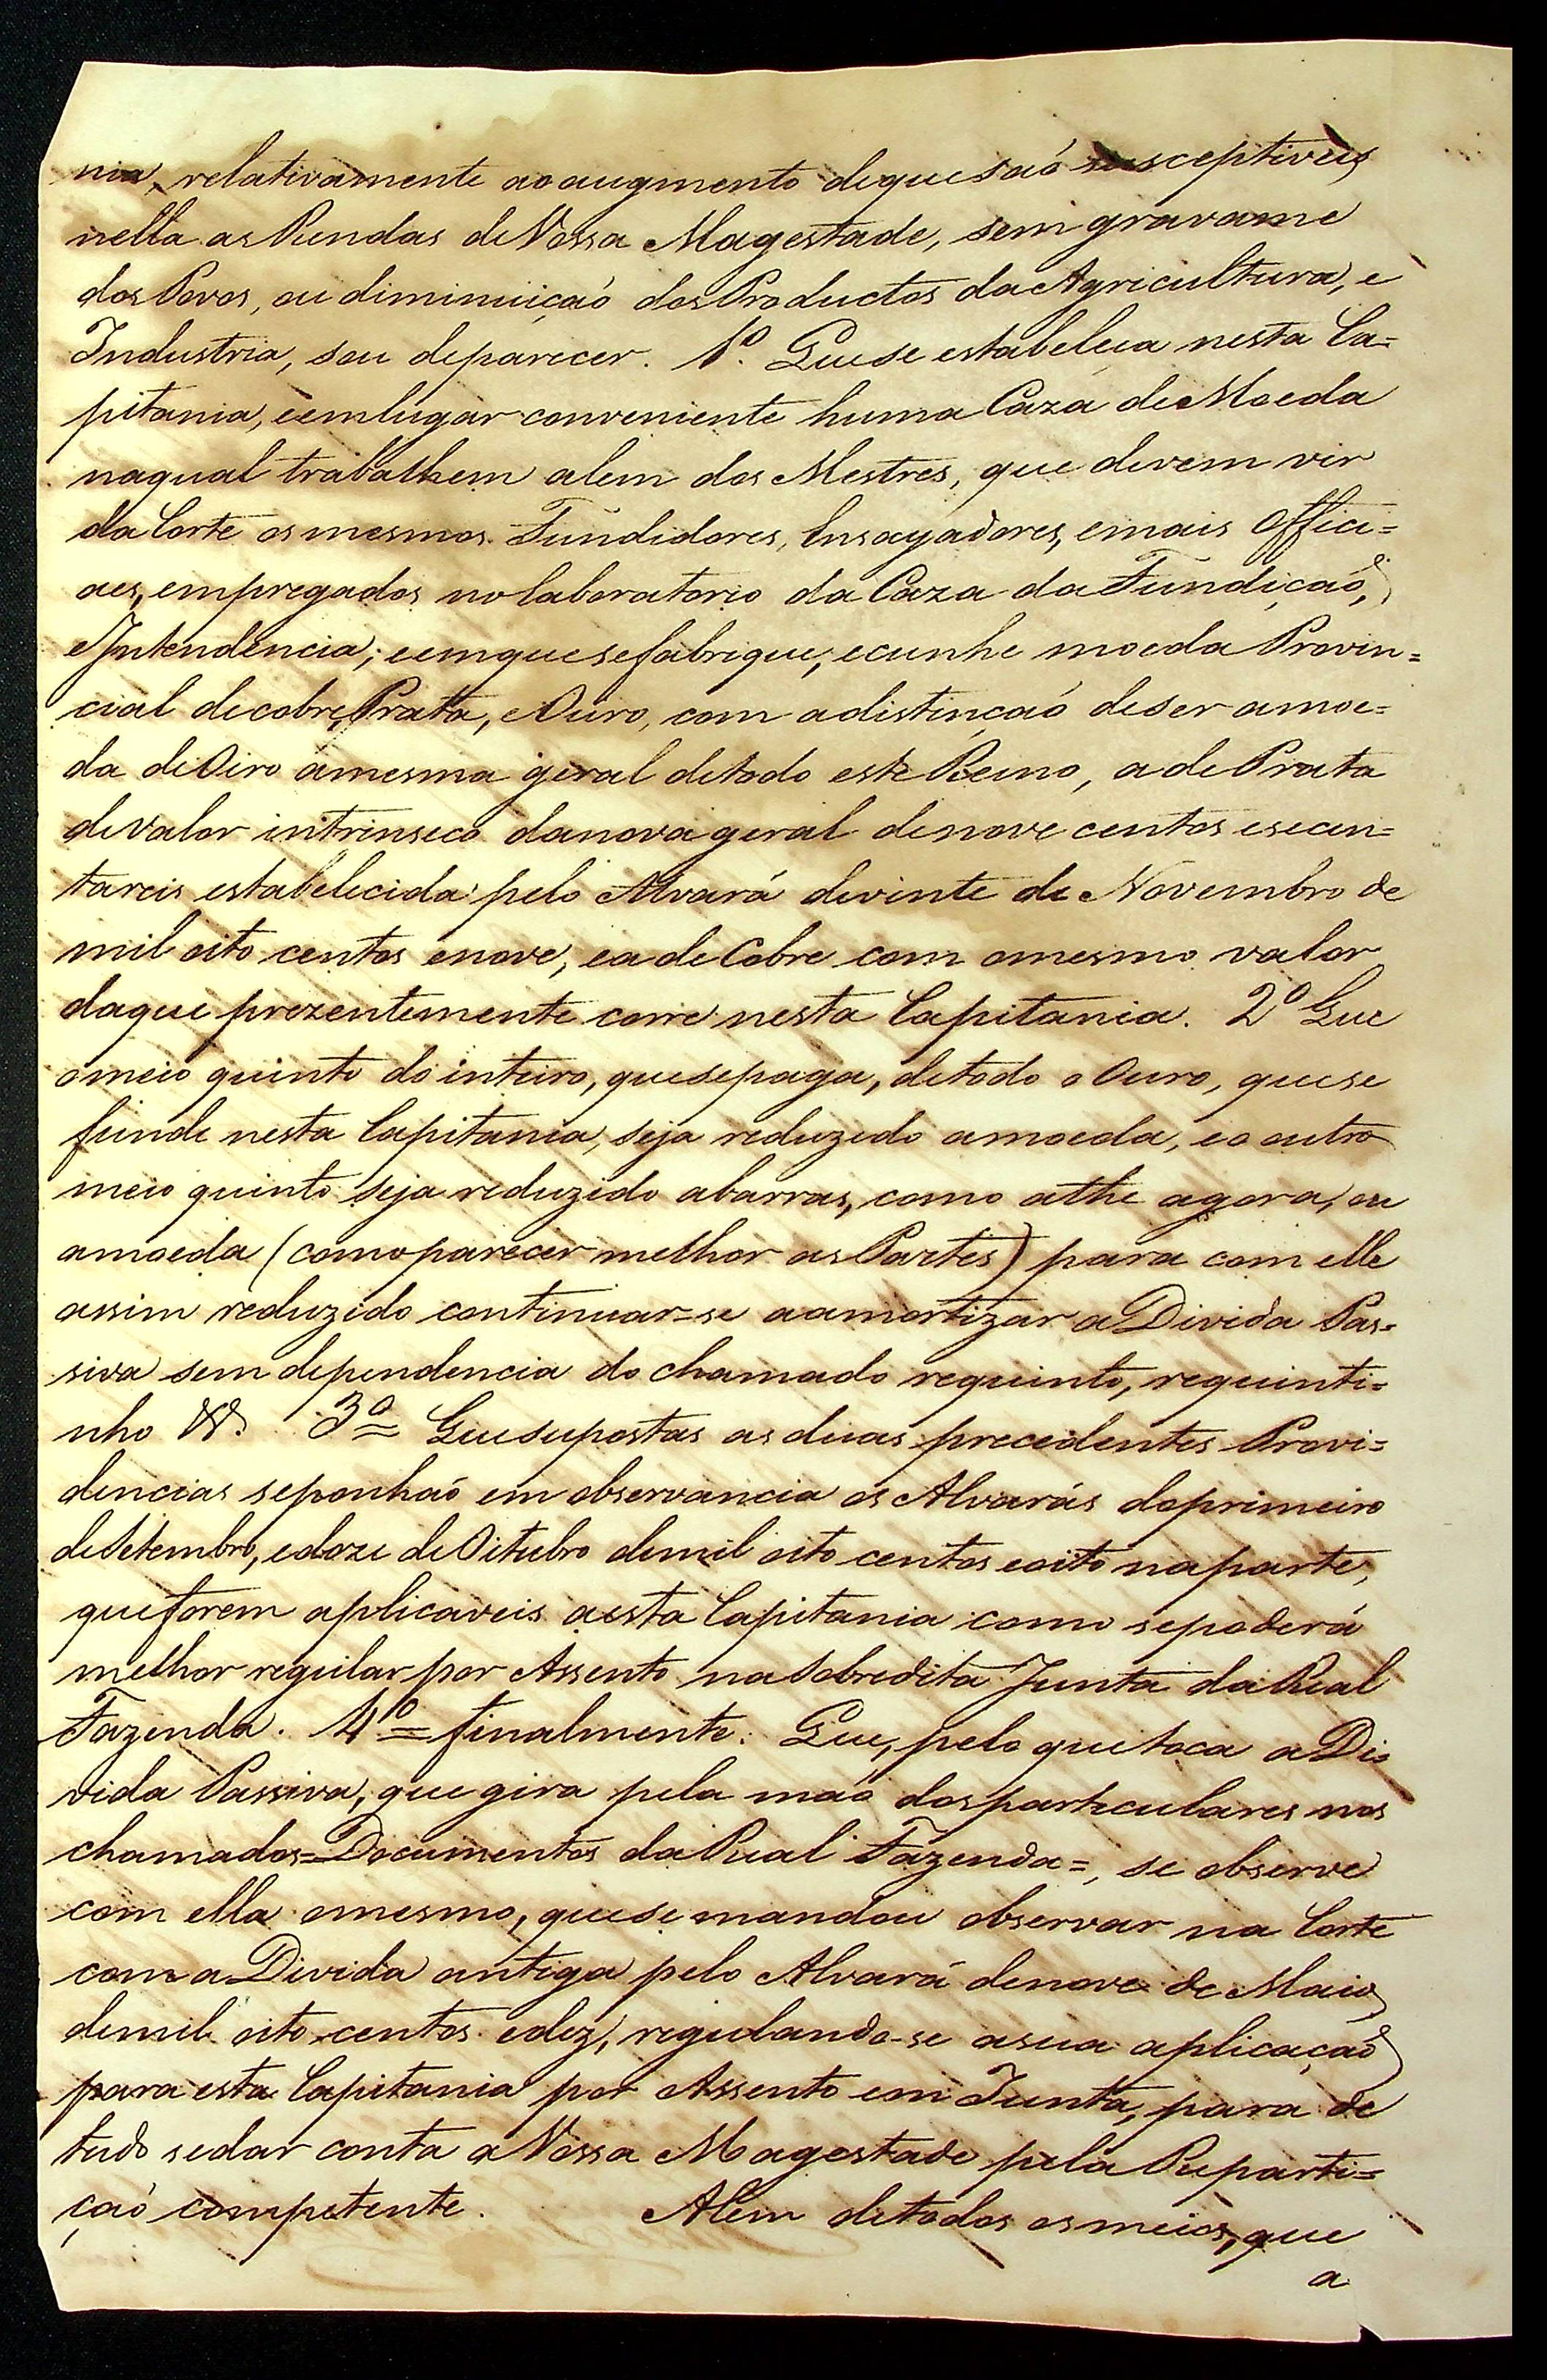 nia, relativamente ao augmento de que saõ susceptiveis
nella as Rendas de Vossa Magestade, sem gravame
dos Povos, ou diminuiçaõ dos Productos da Agricultura, e
Industria, sou de parecer. 1º. Que se estabeleça nesta Ca=
pitania, e em lugar conveniente huma Caza de Moeda
na qual trabalhem alem dos Mestres, que devem vir
da Corte os mesmos Fundidores, Ensayadores, e mais Offici=
aes, empregados no laboratorio da Caza da Fundiçaõ,
e Intendencia; e em que se fabrique, e cunhe moeda Provin=
cial de cobre, Prata, e Ouro, com a distinçaõ de ser a moe=
da de Oiro a mesma geral de todo este Reino, a de Prata
de valor intrinseco da nova geral de nove centos e secen=
ta reis estabelecida pelo Alvará de vinte de Novembro de
mil oito centos e nove, e a de Cobre com o mesmo valor
da que prezentemente corre nesta Capitania. 2º Que
o meio quinto do inteiro, que se paga, de todo o Ouro, que se
funde nesta Capitania, seja reduzido a moeda, e o outro
meio quinto seja reduzido a barras, como athe agora, ou
a moeda (como parecer melhor as Partes) para com elle
assim reduzido continuar-se a amortizar a Divida Pas=
siva sem dependencia do chamado requinto, requinti=
nho &. 3º= Que supostas as duas precedentes Provi=
dencias se ponhaõ em observancia os Alvarás do primeiro
de Setembro, e doze de Oitubro de mil oito centos e oito na parte,
que forem aplicaveis a esta Capitania como se poderá
melhor regular por Assento na Sobredita Junta da Real
Fazenda. 4º= finalmente: Que, pelo que toca a Di=
vida Passiva, que gira pela maõ dos particulares nos
chamados=Documentos da Real Fazenda=, se observe
com ella o mesmo, que se mandou observar na Corte
com a Divida antiga pelo Alvará de nove de Maio
de mil oito centos e dez, regulando-se a sua aplicaçaõ
para esta Capitania por Assento em Junta, para de
tudo se dar conta a Vossa Magestade pela Reparti=
çaõ competente. Alem de todos os meios, que
a